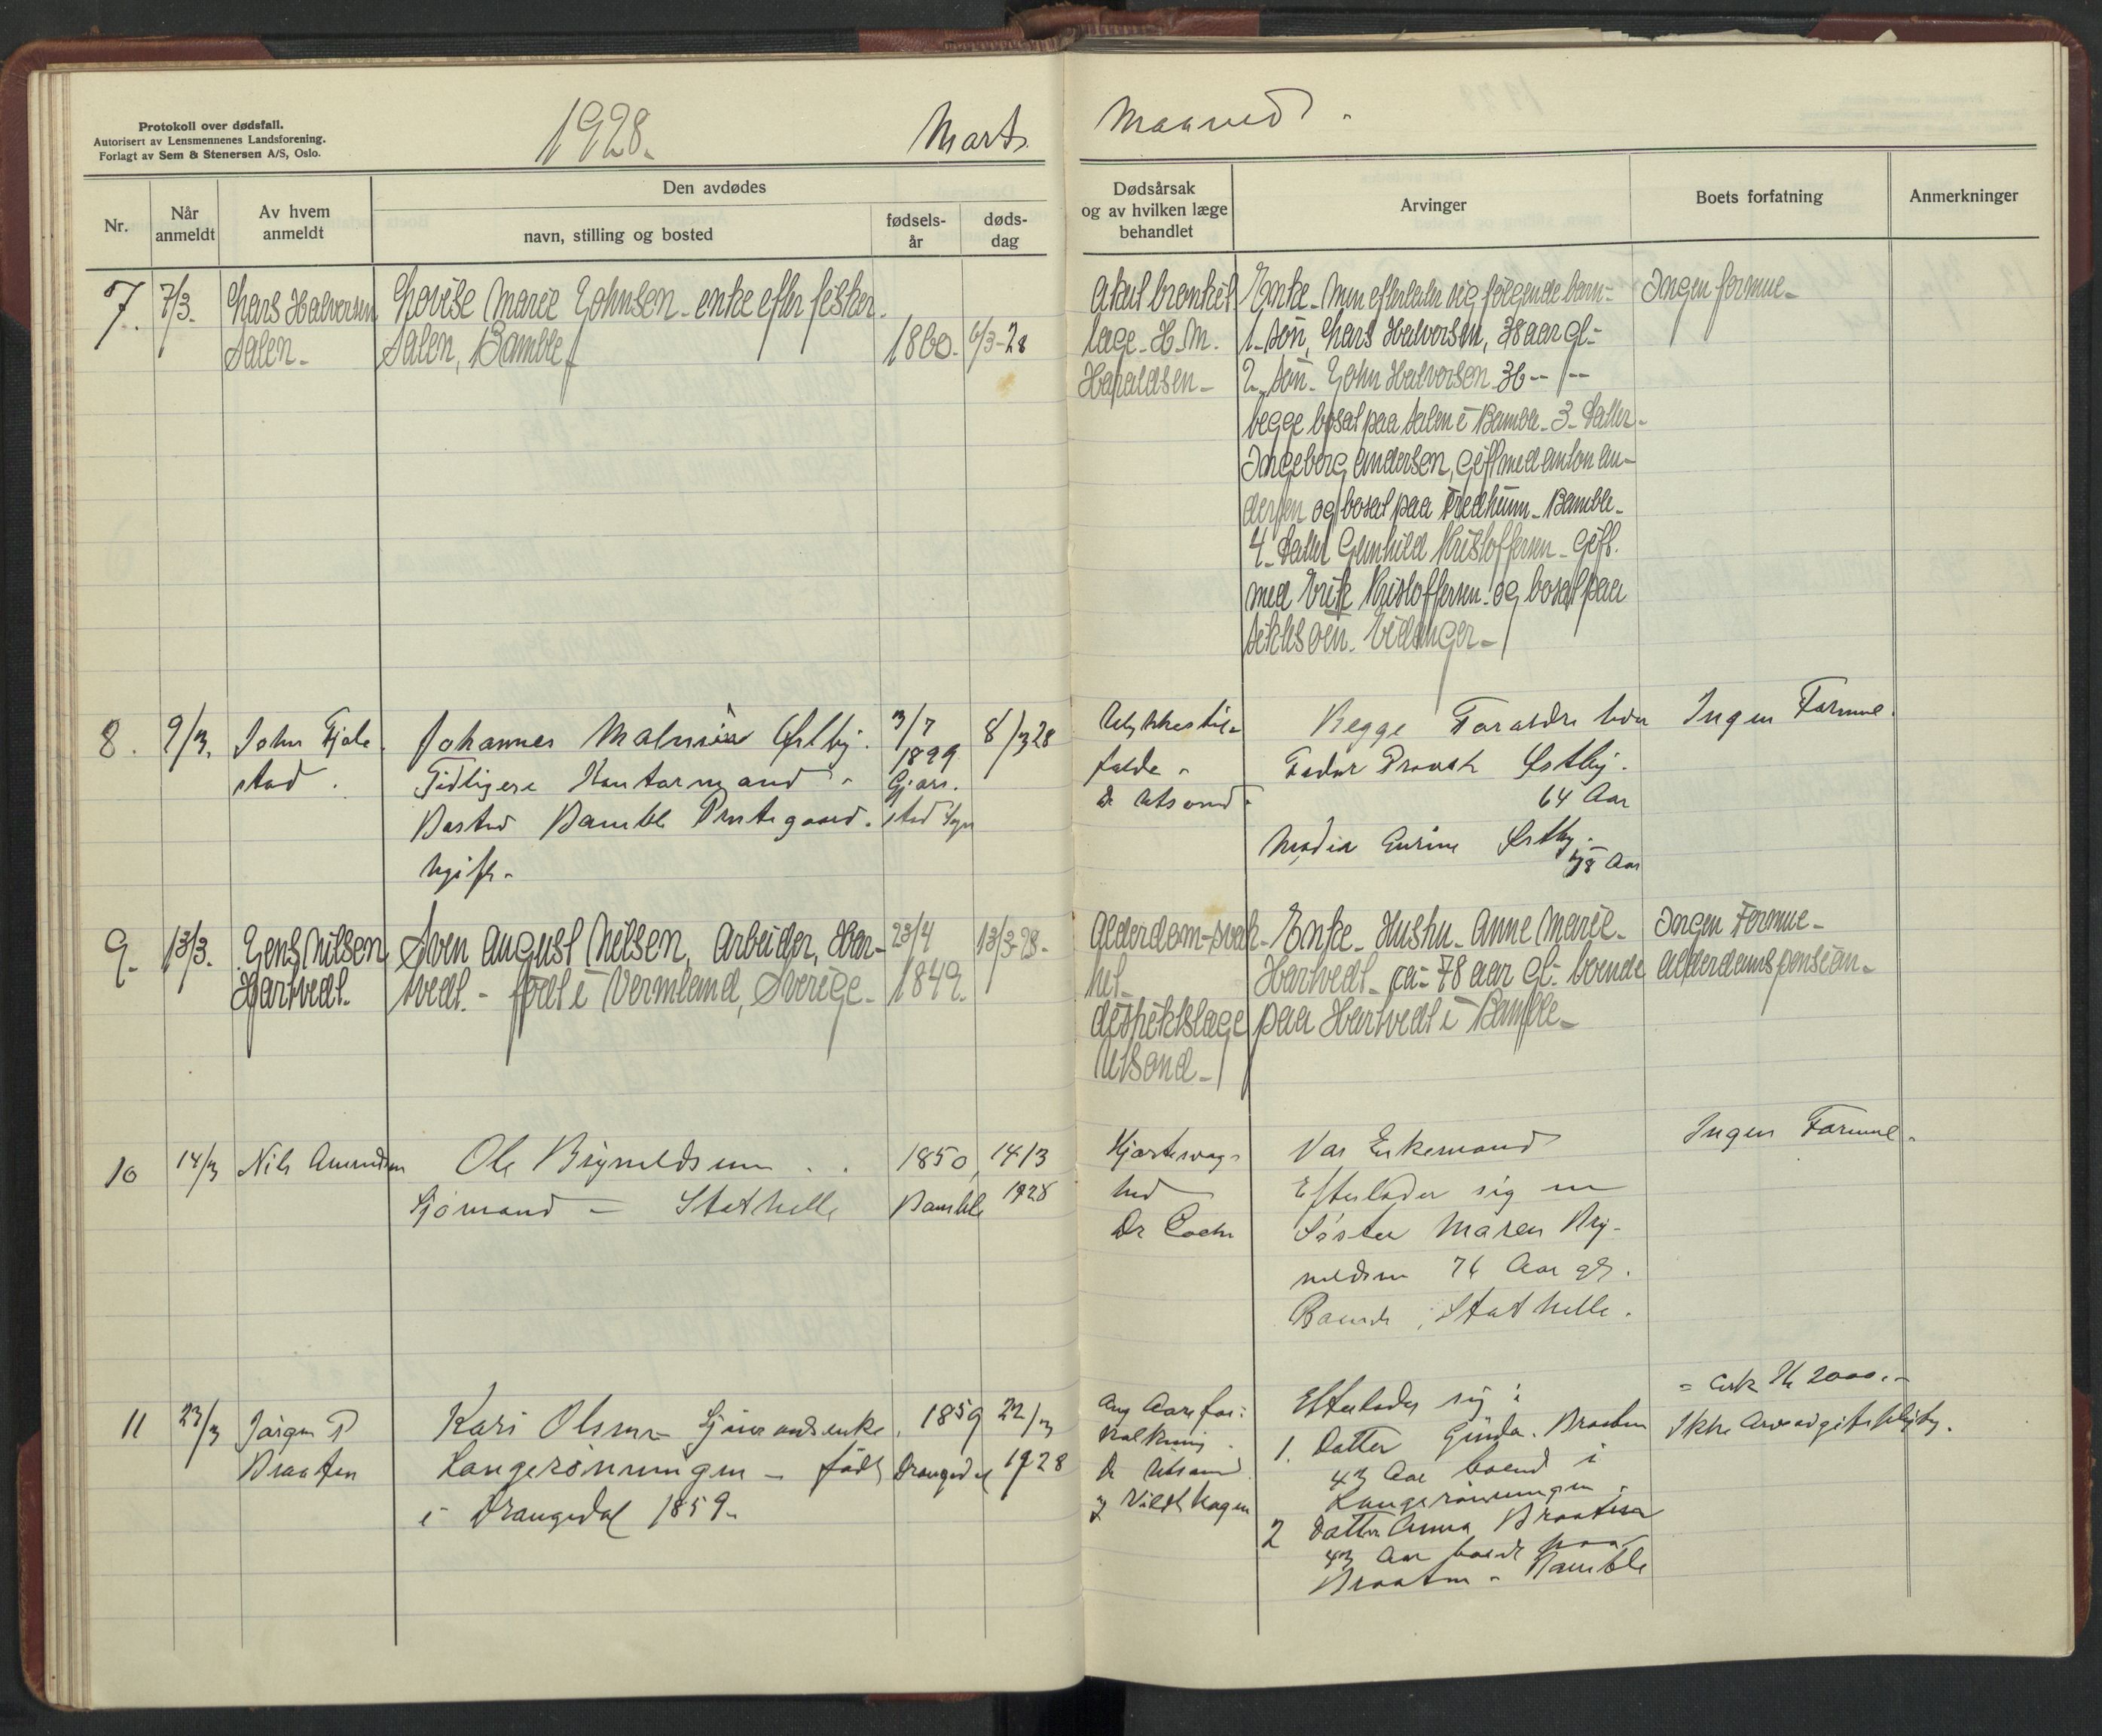 Protokoll over dødsfall.
Autorisert av Lensmennenes Landsforening.
Forlagt av Sem & Stenersen A/S, Oslo.
1928.
Marts Maaned.
Nr.
Når anmeldt
Av hvem anmeldt
Den avdødes
navn, stilling og bosted
fødsels-år
døds-dag
Dødsårsak og av hvilken læge behandlet
Arvinger
Boets forfatning
Anmerkninger
7. 7/3.
Lars Halvorsen
Salen-
Lovise Marie Johnsen - enke efter fisker.
Salen, Bamble
1860. 6/3-28
Akut bronkit
læge - H. M.
Haraldsen -
Enke - Men efterlater sig følgende barn:-
1. søn, Lars Halvorsen, 38 aar gl-
2. søn. John Halvorsen 36 -- / --
begge bosat paa Salen i Bamble - 3 - Datter -
Ingeborg Andersen, gift med Anton An-
dersen og bosat paa Fredheim - Bamble -
4 - Datter Gunhild Kristoffersen - Gift.
med Erik Kristoffersen og bosat paa
Eidanger -
Ingen formue -
8. 9/3.
John Fjele
stad.
Johannes Østby.
Tidligere Kontormand.
Bosted Bamble Prestegaard.
Ugift.
3/7
1899
Gjers.
stad Sogn
8/3 28
Ulykkestil-
fælde.
Dr Utsond.
Begge Foraldre lever
Fader Provst Østby.
64 Aar
Moder Østby.
Aar
Ingen Formue.
9. 13/3.
Jens Nilsen
Hartvedt.
Sven August Nilsen, Arbeider, Har-
tvedt. - født i Vermland, Sverige -
23/4
1849.
13/3-28.
Alderdom-svak-
het -
distriktslæge
Utsond -
Enke - Hustru - Anne Marie -
Hartvedt - ca - 78 aar gl - boende
paa Hartvedt i Bamble -
Ingen Formue -
Alderdomspension -
10 14/3
Nils Amundsen
Ole Brynildsen
Sjømand - Stathelle
1850,
Bamble
14/3
1928
Hjertesvag-
hed
Dr
Var Enkemand
Efterlader sig en
Søster Maren Bry-
nildsen 76 Aar gl.
Boende, Stathelle.
Ingen Formue.
11 23/3
Jørgen P
Braaten
Kari Olsen Sjømandsenke,
Langerønningen - født
i Drangedal 1859.
1859
Drangedal
22/3
1928
Aarefor-
kalkning.
Dr Utsond
og Vildthagen
Efterlader sig:
1. Datter Braaten
43 Aar boend i
Langerønningen.
2 Datter Anna Braaten
43 Aar boende paa
Braaten - Bamble
= cirk Kr 2000.-
Ikke Arveavgiftspligtig.